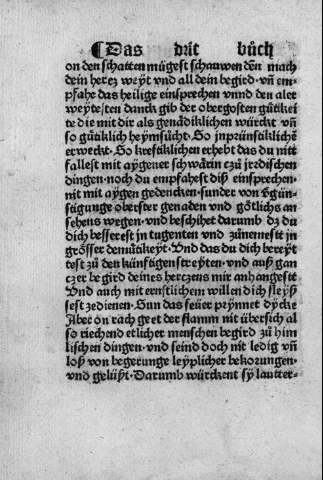 ¶Das drit bůch
on den schatten mügest schauwen deñ mach
dein hertz weyt vnd all dein begird · vñ em-
pfahe das heilige einsprechen vnnd den aler
weytesten danck gib der obergosten gütikei
te die mit dir als genädiklichen würckt vñ
so gütiklich heymsücht · So inprünstiklichē
erweckt · So kreftiklichen erhebt das du nit
fallest mit aygener schwärin czů jrdischen
dingen · noch du empfahest diß einsprechen ·
nit mit aygen gedencken · sunder von v̈gün-
stigunge oberster genaden vnd götlichs an
sehens wegen · vnd beschiht darumb dz du
dich besserest in tugenten vnd zůnemest in
grösser demütikeyt · Vnd das du dich bereyt
test zů den künftigen streyten · vnd auß gan
czer begird deines hertzens mir anhangest
Vnd auch mit ernstlichem willen dich fleyß
sest zedienen · Sun das feüer prynnet dycke
Aber on rach geet der flamm nit übersich al
so riechend etlicher menschen begird zů him
lischen dingen · vnd seind doch nit ledig vñ
loß von begerunge leyplicher bekorungen ·
vnd gelüst · Darumb würckent sy lautter-